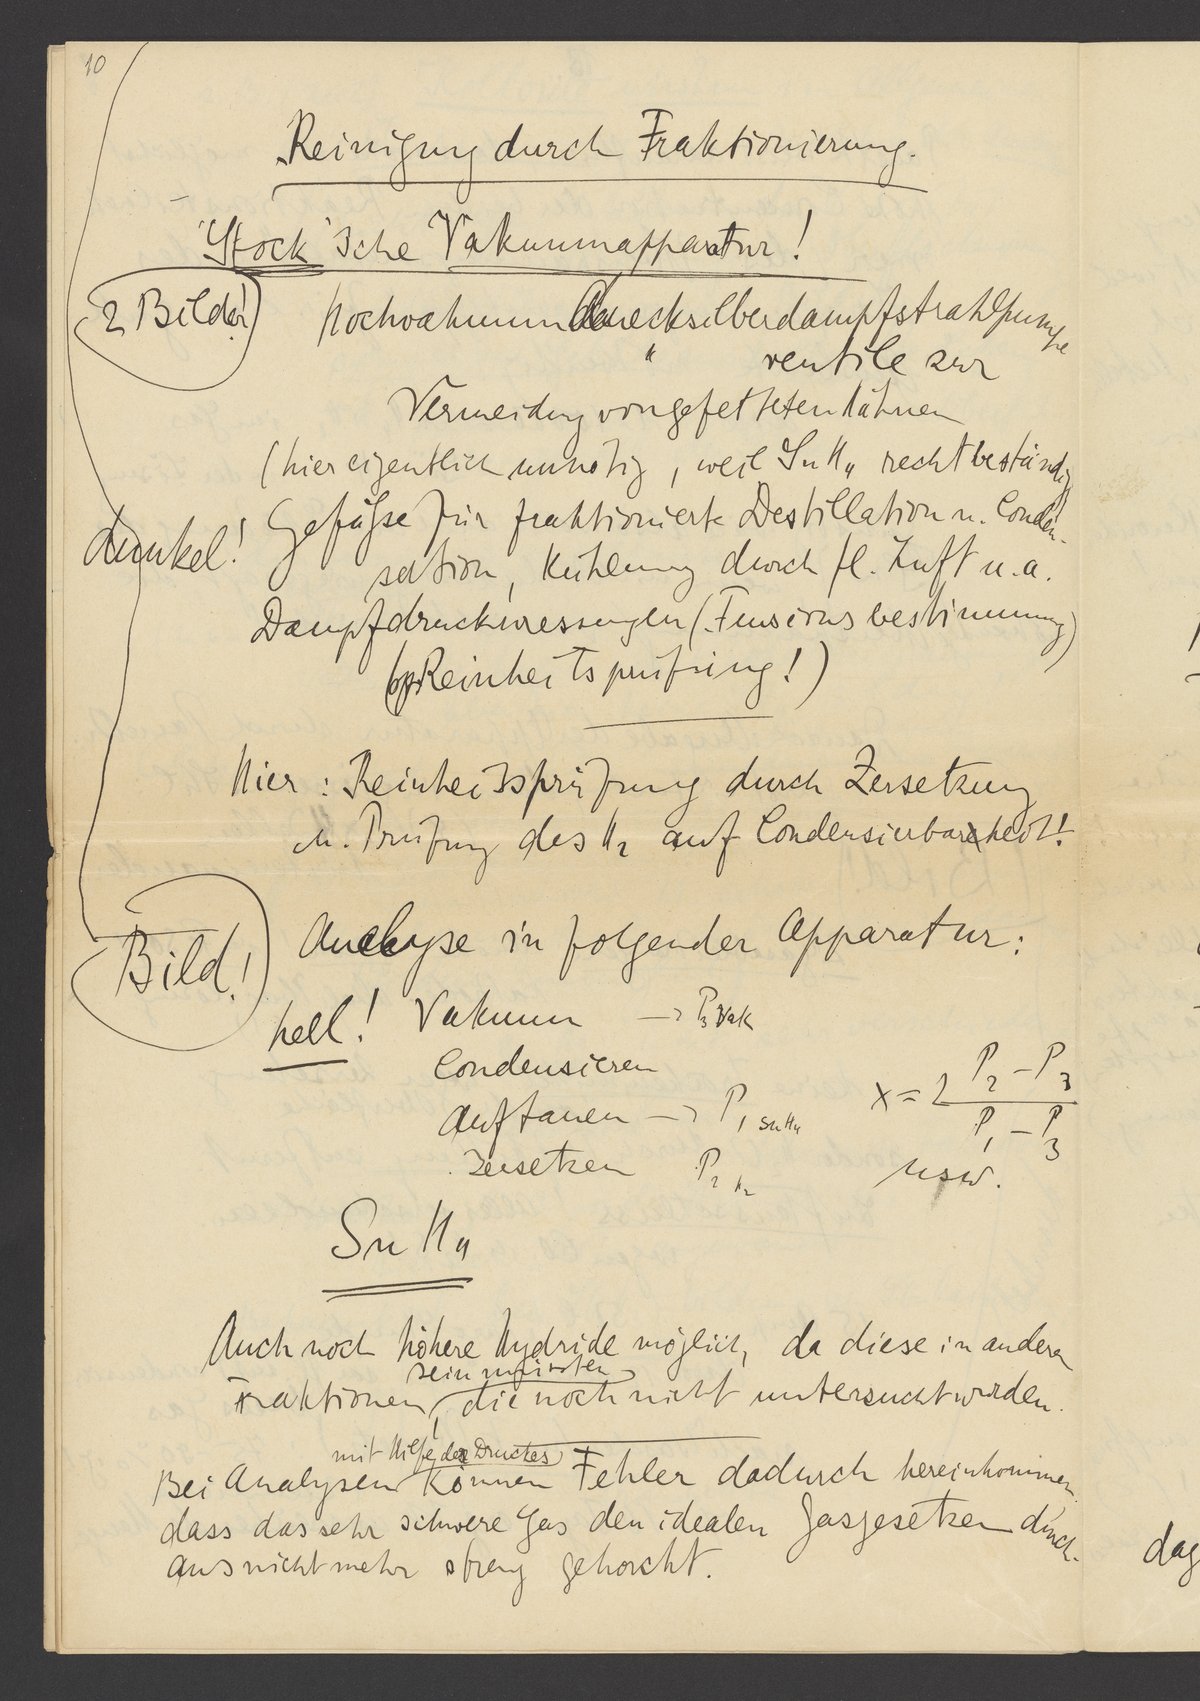 10
Reinigung durch Fraktionierung.
"Stock"sche Vakuumapparatur!
2 Bilder!
Hochvakuum Quecksilberdampfstrahlpumpe
" ventile zur
Vermeidung von gefetteten Hähnen
(hier eigentlich unnötig, weil SnH4 recht beständig
dunkel!
Gefäße für fraktionierte Destillation u. Conden-
sation, Kühlung durch fl. Luft u.a.
Dampfdruckmessungen (Tensionsbestimmung)
Reinheitsprüfung!)
Hier: Reinheitsprüfung durch Zersetzung
u. Prüfung des H2 auf Condensierbarkeit!
Bild!
Analyse in folgender Apparatur:
hell!
Vakuum → P3 Vak
Condensieren
Auftauen → P1 SnH4
Zersetzen P2 H2
x = 2 (P2 – P3) / (P1 – P3)
usw.
SnH4
Auch noch höhere Hydride möglich, da diese in anderen
sein müssten
Fraktionen, die noch nicht untersucht wurden.
mit Hilfe des Druckes
Bei Analysen können Fehler dadurch hereinkommen,
dass das sehr schwere Gas den idealen Gasgesetzen durch-
aus nicht mehr streng gehorcht.
dag